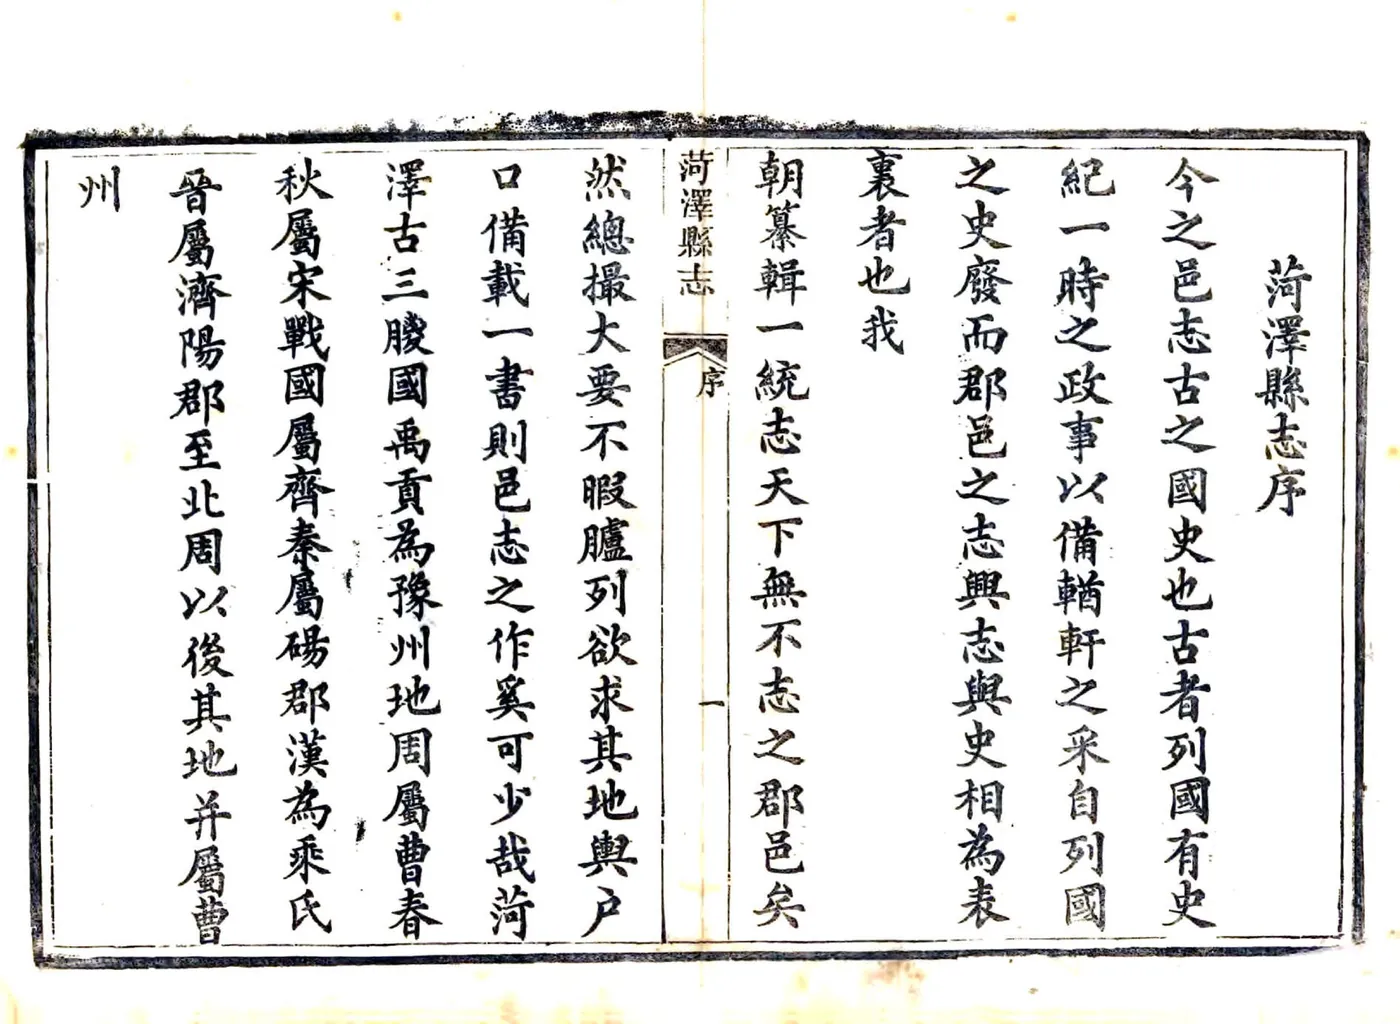 菏澤縣志序
今之邑志古之國史也古者列國有史
紀一時之政事以備輶軒之采自列國
之史廢而郡邑之志興志與史相為表
裏者也我
朝纂輯一統志天下無不志之郡邑矣
菏澤縣志
序
一
然總撮大要不暇臚列欲求其地輿户
口備載一書則邑志之作奚可少哉菏
澤古三朡國禹貢為豫州地周屬曹春
秋屬宋戰國屬齊秦屬碭郡漢為乘氏
晉屬濟陽郡至北周以後其地并屬曹
州